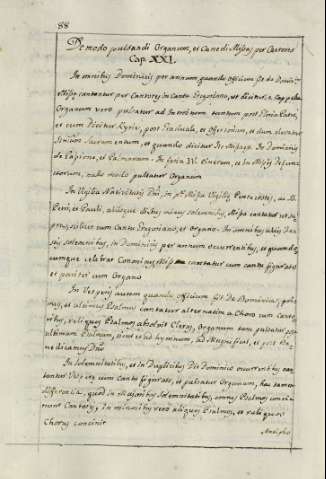 88
De modo pulsandi Organum, et Canendi Missas per Cantores
Cap. XXI.
In omnibus Dominicis per annum, quando officium fit de Dominica
Missae cantantur per Cantores in Cantu Gregoriano, et dicitur a Cappella
Organum vero pulsatur ad Introitum tantum post Gloria Patri,
et cum dicitur Kyrie, post Graduale, et Offertorium, et dum elevatur
Sanctissimum Sacramentum, et quando dicitur Ite Missa est. In Dominicis
de Passione, et Palmarum. In feria IV. Cinerum, et in Missis Defunc
torum, nullo modo pulsatur Organum
In Vigilia Nativitatis Dni, in Missa Vigiliae Pentecostes,
Petri, et Pauli, aliisque diebus minus solemnibus, Missa cantatur ut su
pra, scilicet cum Cantu Gregoriano, et Organo. In omnibus aliis Fes
tis solemnibus, in Dominicis per annum occurrentibus, et quando
cumque celebrat Canonicus Missa cantatur cum cantu figurato
et pariter cum Organo
In Vesperis autem quando officium fit de Dominica, primus
et ultimus Psalmus cantatur alternatim a Choro cum Canto
ribus, reliquos Psalmos absolvit Clerus, Organum tum pulsatur post
ultimum Psalmum, sicut et ad hymnum, ad Magnificat, et post
Benedicamus Dno
In Solemnitatibus, et in Duplicibus Die Dominico occurrentibus can
tantur Vesperae cum Cantu figurato, et pulsatur Organum, hac tamen
differentia, quod in Majoribus Solemnitatibus, omnes Psalmos conci
nunt Cantores, In minoribus vero aliquos Psalmos, et reliquos
Chorus concinit